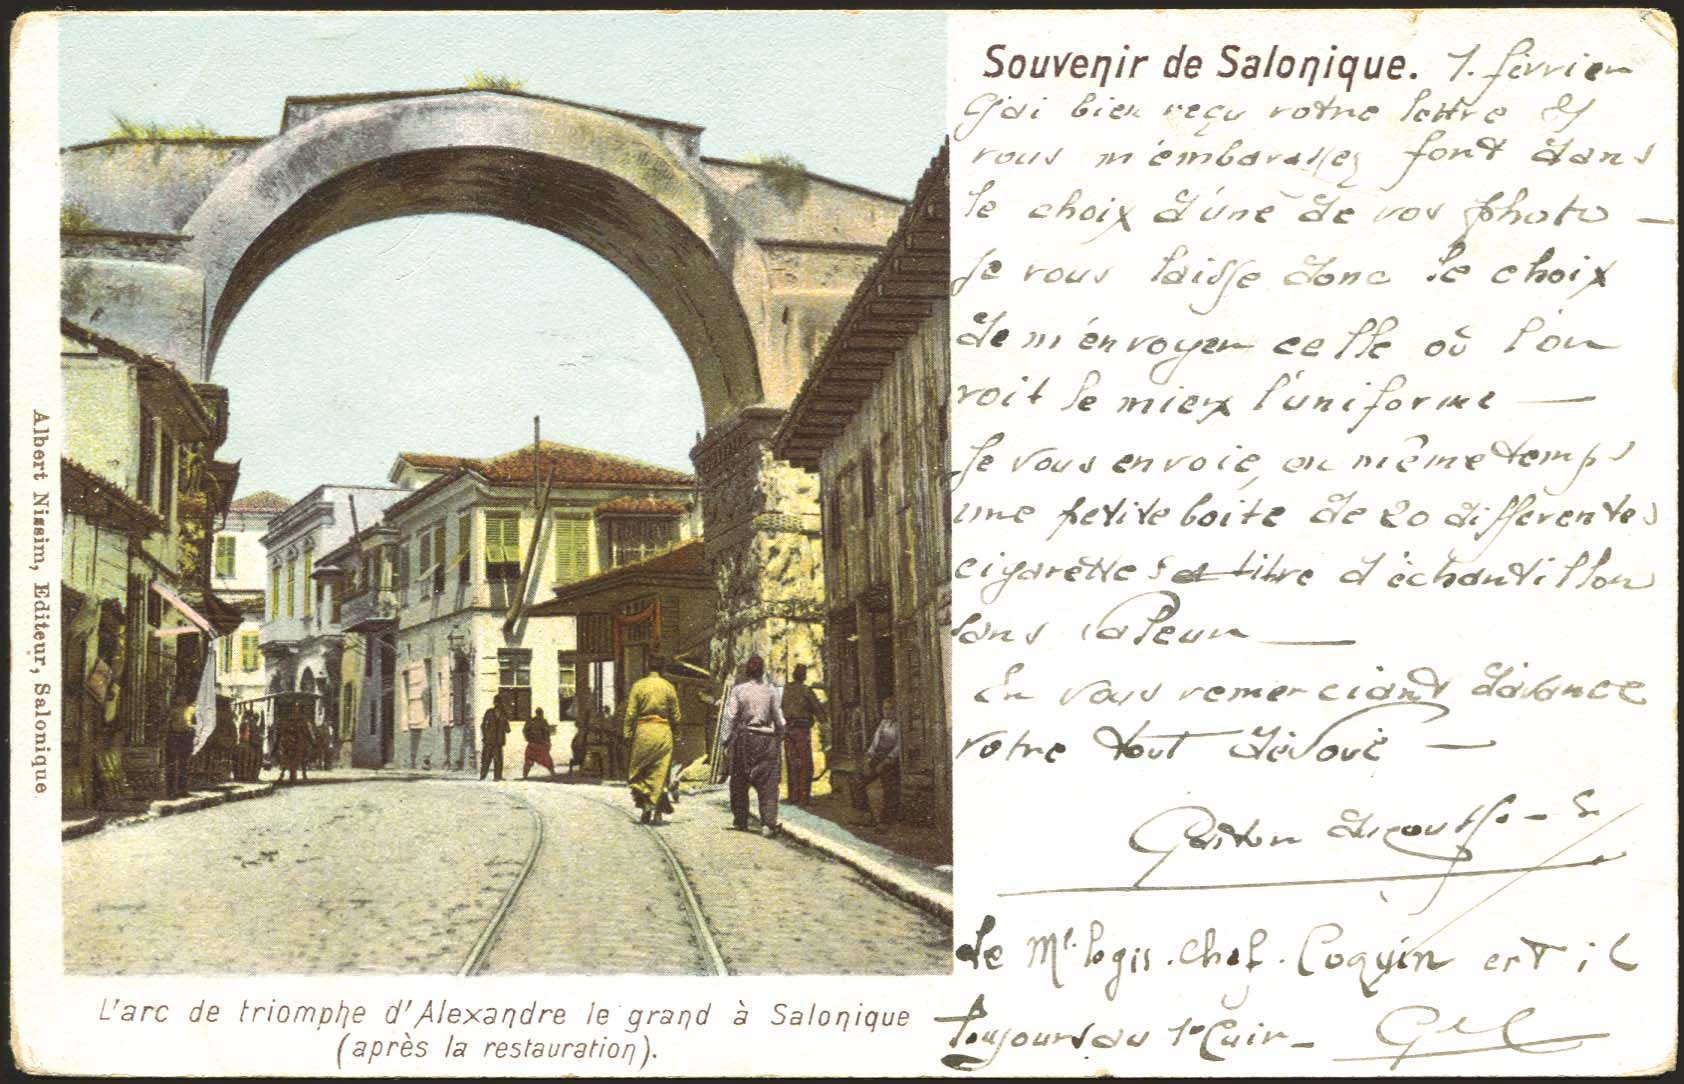 Souvenir de Salonique. 1. février
J'ai bien reçu votre lettre et
vous m'embarassez fort dans
le choix d'une de vos photo —
Je vous laisse donc le choix
de m'envoyer celle où l'on
voit le mieux l'uniforme —
Je vous envoie, en même temps
une petite boite de 20 differentes
cigarettes à titre d'échantillon
sans valeur —
En vous remerciant d'avance
votre tout dévoué —
Gaston
Le Ml. logis. chef. Coquin est il
toujours au 1er Cuir —
Albert Nissim, Editeur, Salonique
L'arc de triomphe d'Alexandre le grand à Salonique
(après la restauration).